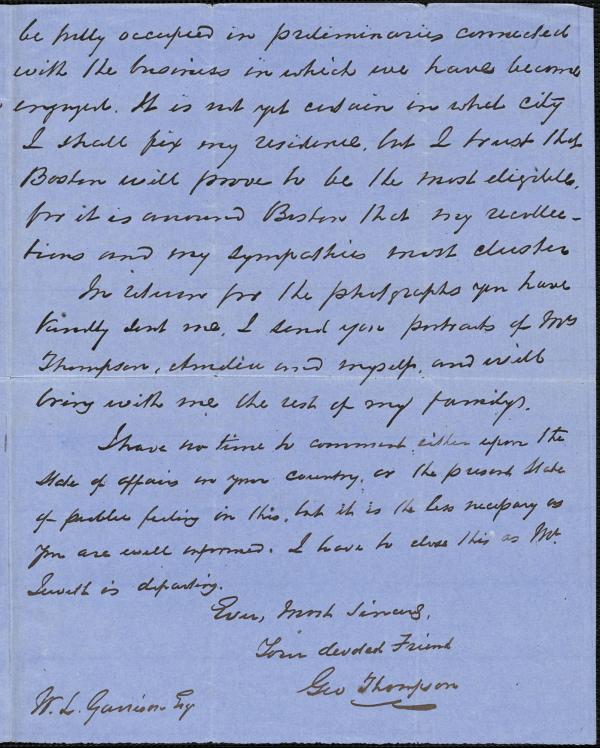 be fully occupied in preliminaries connected
with the business in which we have become
engaged. It is not yet certain in what city
I shall fix my residence, but I trust that
Boston will prove to be the most eligible,
for it is around Boston that my recollec-
tions and my sympathies most cluster
In return for the photographs you have
kindly sent me, I send you portraits of Mrs
Thompson, Amelia and myself, and will
bring with me the rest of my family.
I have no time to comment either upon the
state of affairs in your country, or the present state
of public feeling in this, but it is the less necessary as
you are well informed. I have to close this as Mr.
is departing.
Ever, Most Sincerely,
Your devoted Friend
Geo Thompson
W. L. Garrison Esq